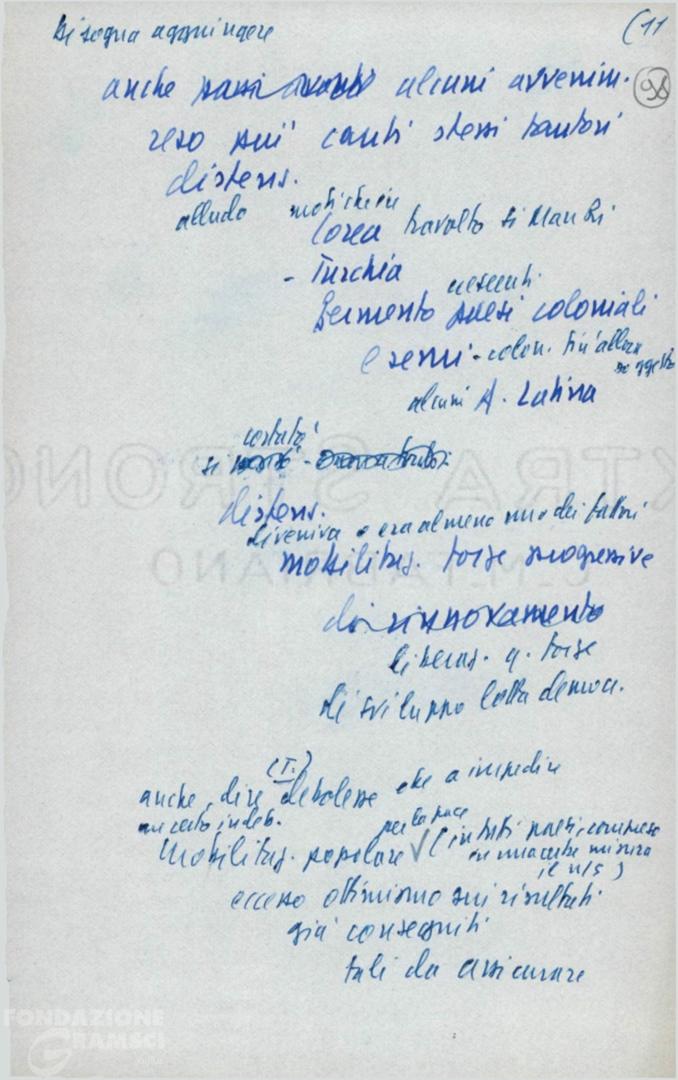 Bisogna aggiungere (11
anche alcuni avvenim. 98
reso più cauti stessi fautori
distens.
alludo moti che in
Corea travolto Si Man Ri
- Turchia
crescenti
Fermento paesi coloniali
e semi-colon. fin'allora soggetti
alcuni A. Latina
costatò
si
distens.
diveniva o era almeno uno dei fattori
mobilitaz. forze progressive
di rinnovamento
liberaz. q. forze
di sviluppo lotta democr.
(T.)
anche dire debolezze che a impedire
un certo indeb. per la pace
Mobilitaz. popolare √ (in tutti paesi, compreso
in una certa misura
il n/s)
eccesso ottimismo sui risultati
già conseguiti
tali da assicurare
FONDAZIONE
GRAMSCI